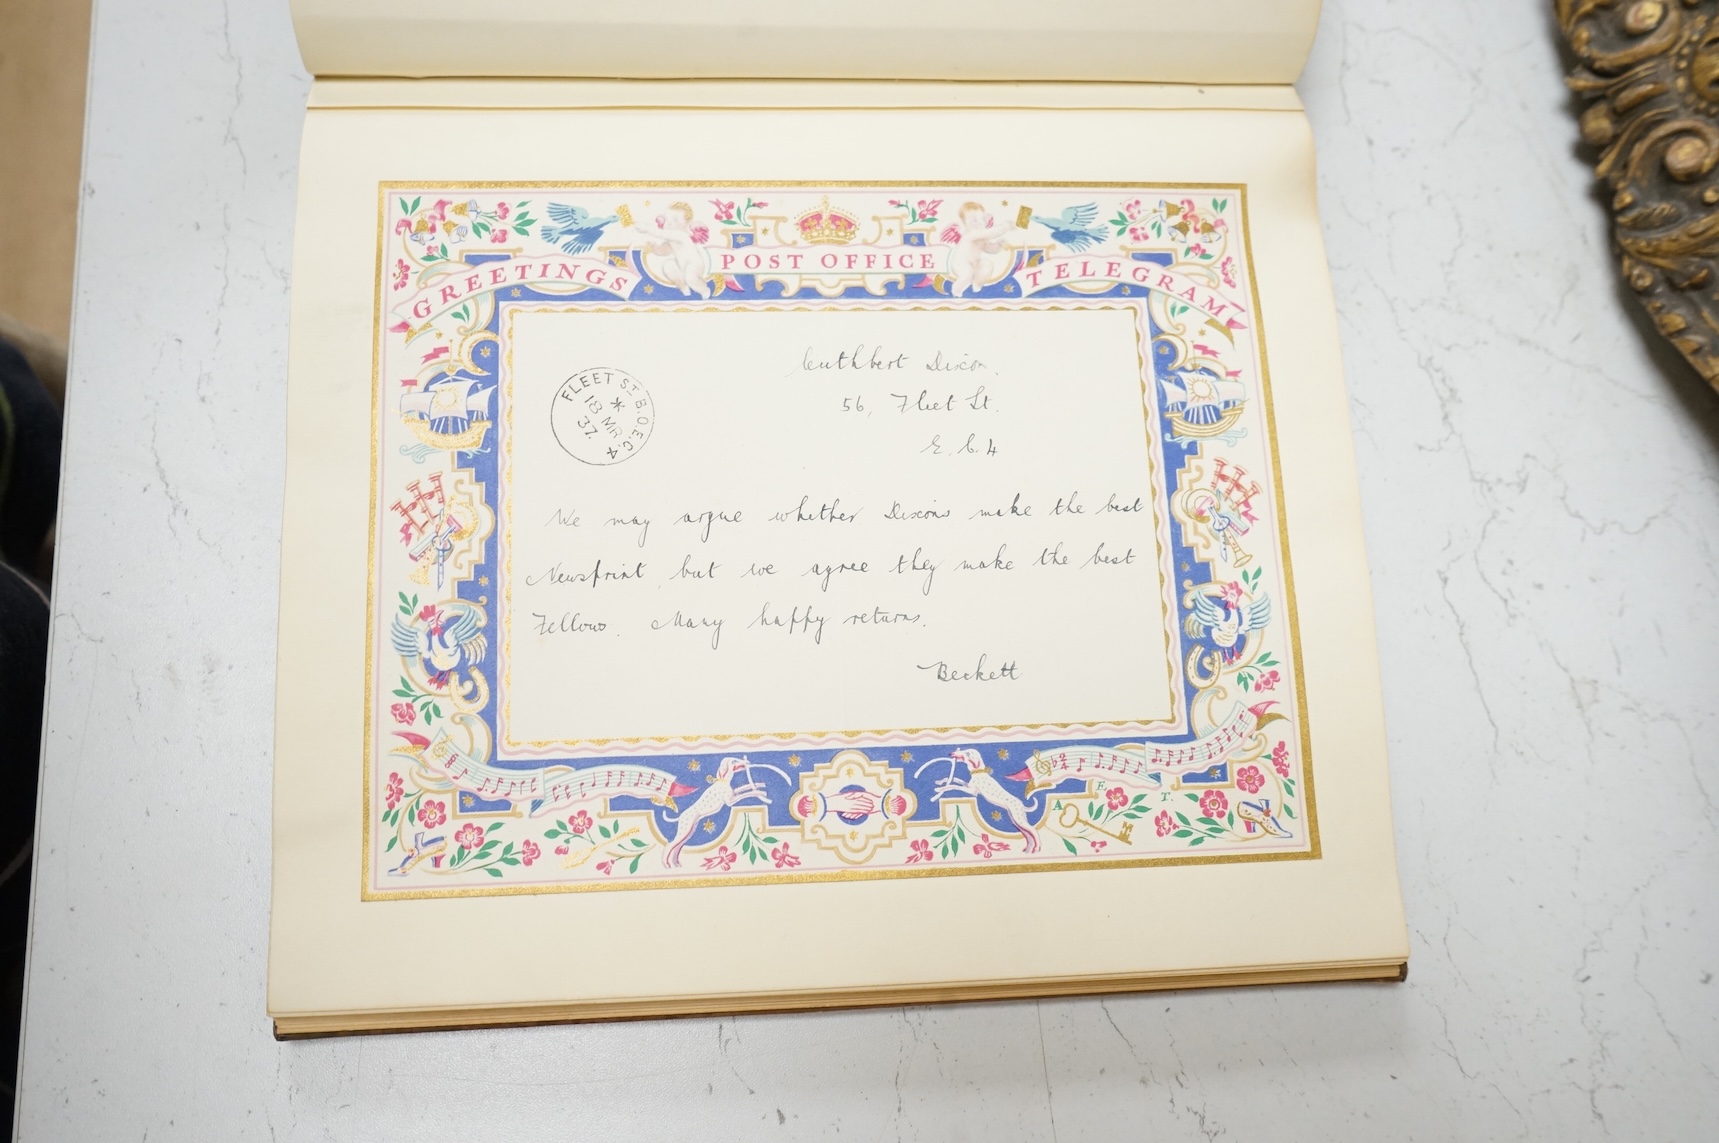 GREETINGS POST OFFICE TELEGRAM
FLEET ST. B.O.E.C.4
18 MR
37.
Cuthbert Dixon.
56, Fleet St.
E.C.4
We may argue whether Dixons make the best
Newsprint, but we agree they make the best
Fellows. Many happy returns.
Beckett
A. E. T.